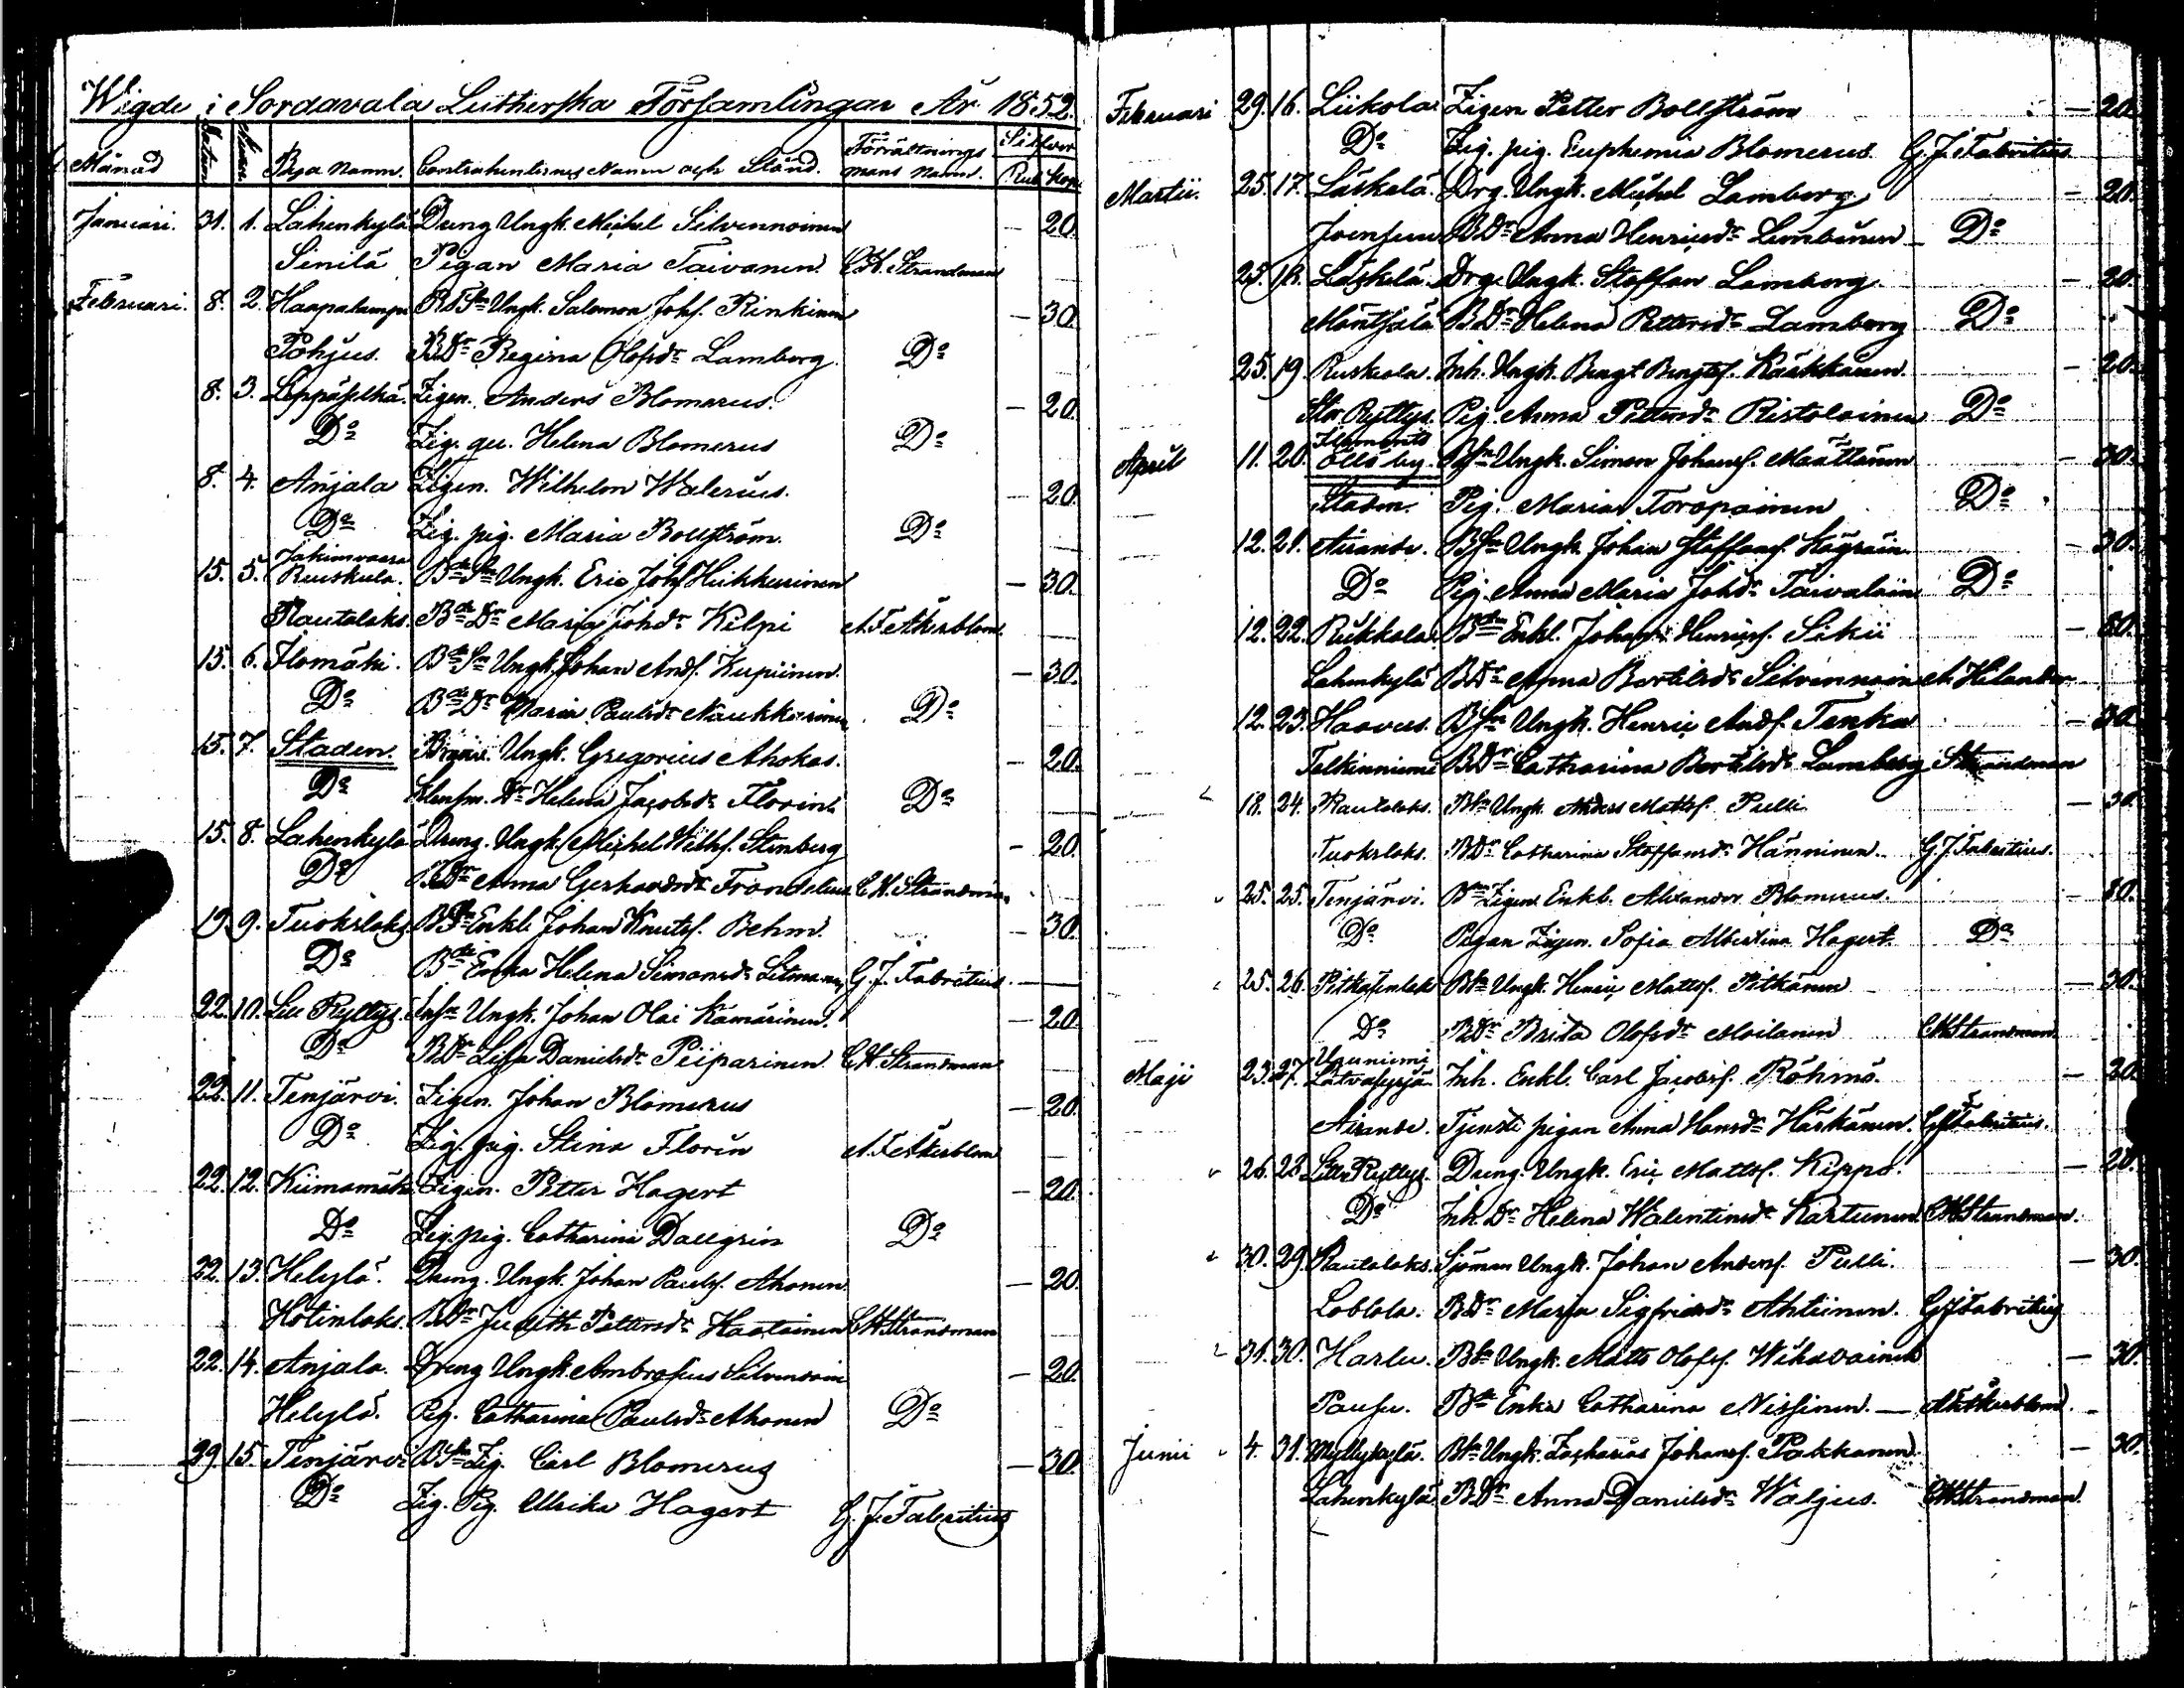 Wigde i Sordavala Lutherska Församlingar År 1852.
Månad Datum Bya Namn. Contrahenternes Namn och Stånd. Förrättnings mans Namn. Silfver Rub Kop.
Januari. 31. 1. Lahenkylä Dreng Ungk. Michel Silvennoinen — 20.
Pigan Maria Taivanen. C.H. Strandman
Februari. 8. 2. Haapalampi Ungk. Salomon Johs. Rinkinen — 30.
Pohjus. B.Dr Regina Olofsdr Lamberg. Do
8. 3. Leppäselkä. Zigen. Anders Blomerus. — 20.
Do Zig. qv. Helena Blomerus Do
8. 4. Anjala Zigen. Wilhelm Walerius. — 20.
Do Zig. pig. Maria Bollström. Do
15. 5. Jakimvaara Ruskula. Bde Sn Ungk. Eric Johs. Hukkurinen — 30.
Rautalaks. Bde Dr Maria Johsdr Kilpi A.F. Åkerblom.
15. 6. Ilomäki. Bde Sn Ungk. Johan Ands. Kupiinen. — 30.
Do Bde Dr Maria Paulsdr Naukkarinen Do
15. 7. Staden. Ungk. Gregorius Ahokas. — 20.
Do Dr Helena Jacobsdr Florin Do
15. 8. Lahenkylä Dreng. Ungk. Michel Wilhs. Stenberg — 20.
Do Anna Gerhardsdr Frondelius C.H. Strandman
19. 9. Tuokslaks Enkl. Johan Knuts. Behm. — 30.
Do Bde Enka Helena Simonsdr Litmanen G.J. Fabritius.
22. 10. Lill Ryttys. Inhs Ungk. Johan Olai Kämärinen. — 20.
Do B.Dr Lisa Danielsdr Piiparinen C.H. Strandman
22. 11. Tenjärvi. Zigen. Johan Blomerus — 20.
Do Zig. pig. Stina Florin A.F. Åkerblom
22. 12. Kiimamäki Zigen. Petter Hagert — 20.
Do Zig. pig. Catharina Dallgrin Do
22. 13. Helylä. Dreng. Ungk. Johan Pauls. Ahonen — 20.
Hotinlaks. B.Dr Judith Pettersdr Haatainen C.H. Strandman
22. 14. Anjala. Dreng Ungk. Ambrosius Silvennoin — 20.
Helylä. Pig. Catharina Paulsdr Ahonen Do
29. 15. Tenjärvi Zig. Carl Blomerus — 30.
Do Zig. Pig. Ulrika Hagert G.J. Fabritius
Februari 29. 16. Liikola. Zigen Petter Bollström — 20.
Do Zig. pig. Euphemia Blomerus. G.J. Fabritius
Martii. 25. 17. Läskelä. Drg. Ungk. Michel Lamberg — 20.
Joensuu B.Dr Anna Henricsdr Do
25. 18. Läskelä. Drg. Ungk. Staffan Lamberg. — 20.
Mäntsälä B.Dr Helena Pettersdr Lamberg Do
25. 19. Ruskeala. Inh. Ungk. Bengt Bengts. Kääkkäinen. — 20.
Stor Ryttys. Pig. Anna Pettersdr Ristolainen Do
April 11. 20. Ilomants by. Bsn Ungk. Simon Johans. Määttänen — 30.
Staden. Pig. Maria Toropainen Do
12. 21. Airanne. Bsn Ungk. Johan Staffans. Kägräin — 30.
Do Pig. Anna Maria Johsdr Taivalain Do
12. 22. Enkl. Johan Henrics. — 30.
Lahenkylä B.Dr Anna Bertilsdr Silvennoin A. Helander
12. 23. Haavus. Bsn Ungk. Henric Ands. Tenka — 30.
Tolkinniemi B.Dr Catharina Bertilsdr Lamberg Strandman
18. 24. Rautalaks. Bsn Ungk. Anders Matts. Pulli — 30.
Tuokslaks. B.Dr Catharina Staffansdr Hänninen. G.J. Fabritius.
25. 25. Tenjärvi. Bsn Zigen. Enkl. Alexander Blomerus. — 30.
Do Pigan Zigen. Sofia Albertina Hagert. Do
25. 26. Bsn Ungk. Henric Matts. Pitkänen — 30.
Do B.Dr Brita Olofsdr Moilanen C.H. Strandman
Maji 23. 27. Uguniemi Latvasyrjä. Inh. Enkl. Carl Jacobs. Röhmö. — 20.
Airanne. Tjenste pigan Anna Hansdr Härkänen. G.J. Fabritius.
26. 28. Lill Ryttys. Dreng. Ungk. Eric Matts. Kippo. — 20.
Do Inh. Dr Helena Walentinsdr Kärtunen C.H. Strandman.
30. 29. Rautalaks. Sjöman Ungk. Johan Anders. Pulli. — 30.
Loblola. B.Dr Maria Sigfridsdr Ahtiinen. G.J. Fabritius
31. 30. Harlu. Bsn Ungk. Matts Olofs. Wihavainen — 30.
Pausu. Enka Catharina Nissinen. — Åkerblom.
Junii 4. 31. Myllykylä. Bsn Ungk. Zacharias Johans. Pakkanen — 30.
Lahenkylä B.Dr Anna Danielsdr Waljus. C.H. Strandman.